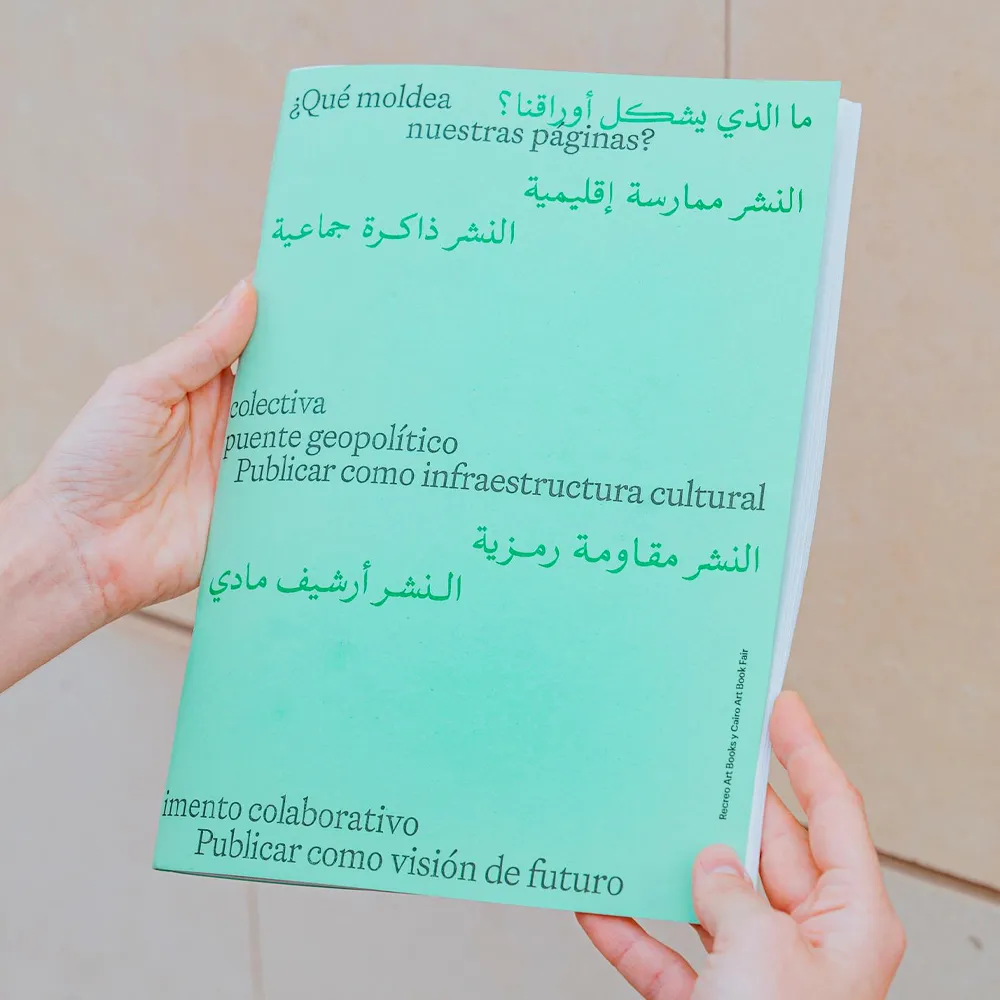 ¿Qué moldea
ما الذي يشكل أوراقنا؟
nuestras páginas?
النشر ممارسة إقليمية
النشر ذاكرة جماعية
colectiva
puente geopolítico
Publicar como infraestructura cultural
النشر مقاومة رمزية
النشر أرشيف مادي
Recreo Art Books y Cairo Art Book Fair
imento colaborativo
Publicar como visión de futuro